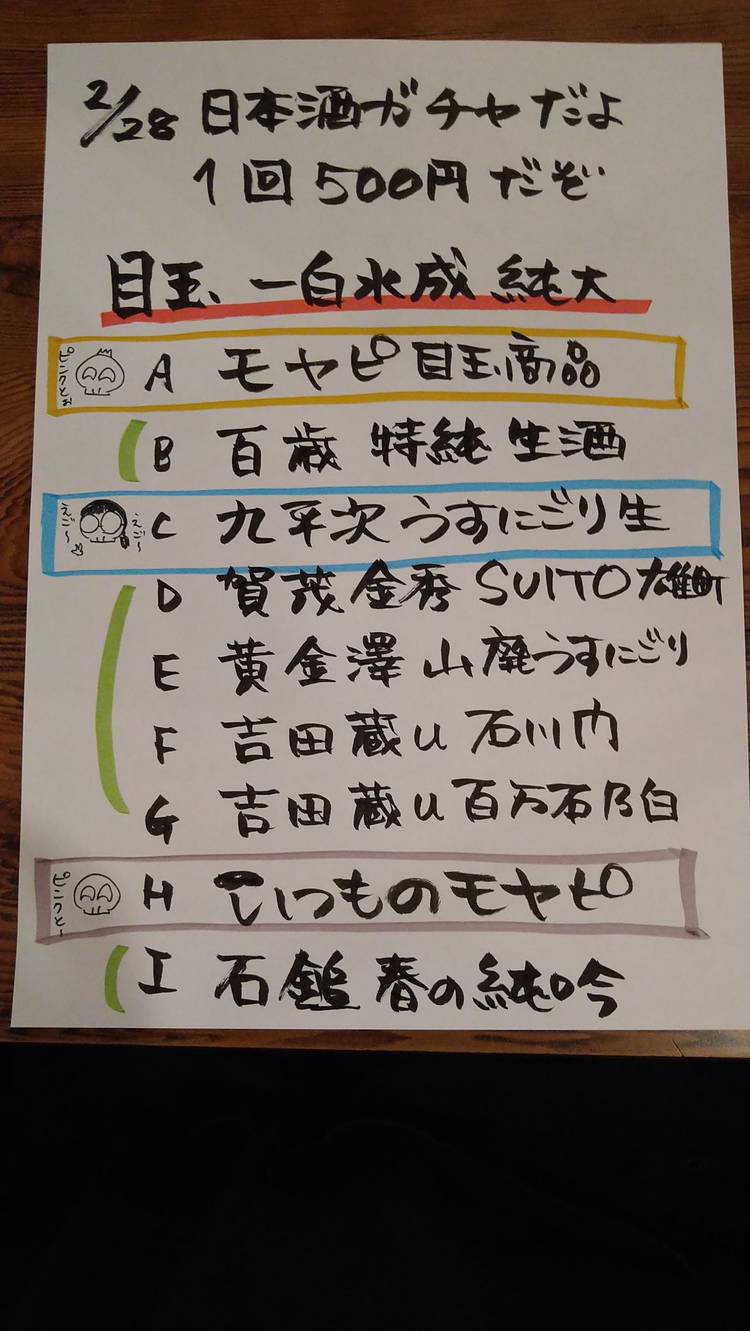 2/28 日本酒ガチャだよ
1回 500円だぞ
目玉、一白水成 純大
ピンクとぉ A モヤピ 目玉商品
B 百歳 特純 生酒
えご〜 えご〜 C 九平次 うすにごり生
D 賀茂金秀 SUITO 雄町
E 黄金澤 山廃うすにごり
F 吉田蔵u 石川門
G 吉田蔵u 百万石乃白
ピンクと〜 H いつものモヤピ
I 石鎚 春の純吟